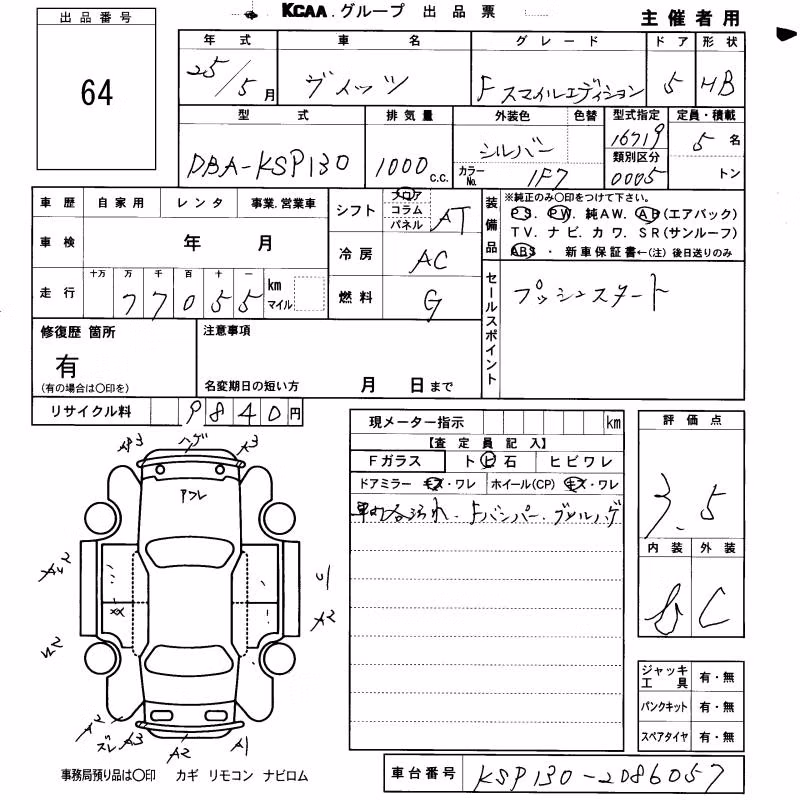 KCAA.グループ 出品票
主催者用
出品番号
64
年式 車名 グレード ドア 形状
25/5月 ヴィッツ Fスマイルエディション 5 HB
型式 排気量 外装色 色替 型式指定 定員・積載
DBA-KSP130 1000c.c. シルバー 16719 5名
カラーNo. 1F7 類別区分 0005 トン
車歴 自家用 レンタ 事業.営業車
シフト フロア コラム パネル AT
装備品 ※純正のみ○印をつけて下さい。
PS. PW. 純AW. AB(エアバック)
TV. ナビ. カワ. SR(サンルーフ)
ABS ・ 新車保証書←(注) 後日送りのみ
車検 年 月
冷房 AC
走行 十万 万 千 百 十 一 km マイル
77055
燃料 G
セールスポイント プッシュスタート
修復歴 箇所
有
(有の場合は○印を)
注意事項
名変期日の短い方 月 日まで
リサイクル料 9840円
現メーター指示 km
【査定員記入】
Fガラス ト ビ 石 ヒビワレ
ドアミラー キズ・ワレ ホイール(CP) キズ・ワレ
Fバンパー・グリルハゲ
評価点
3.5
内装 外装
C
A3 ハゲ A3
アフレ
A2
U1
A2
W2
A2
ズレ A3 A2 A1
ジャッキ工具 有・無
パンクキット 有・無
スペアタイヤ 有・無
事務局預り品は○印 カギ リモコン ナビロム
車台番号 KSP130-2086057